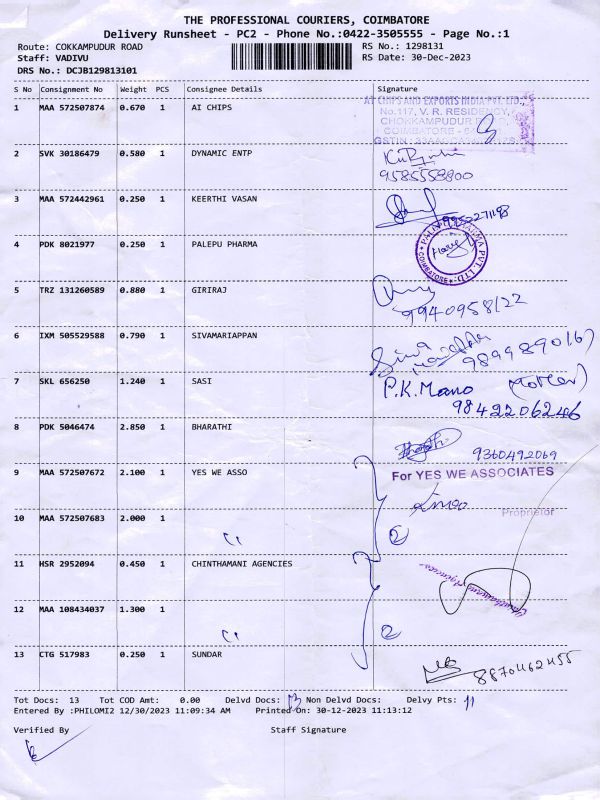 THE PROFESSIONAL COURIERS, COIMBATORE
Delivery Runsheet - PC2 - Phone No.:0422-3505555 - Page No.:1
Route: COKKAMPUDUR ROAD RS No.: 1298131
Staff: VADIVU RS Date: 30-Dec-2023
DRS No.: DCJB129813101
S No Consignment No Weight PCS Consignee Details Signature
1 MAA 572507874 0.670 1 AI CHIPS
AI CHIPS AND EXPORTS INDIA PVT. LTD.,
No.117, V. R. RESIDENCY,
CHOKKAMPUDUR
COIMBATORE
GSTIN
2 SVK 30186479 0.580 1 DYNAMIC ENTP
9585558800
3 MAA 572442961 0.250 1 KEERTHI VASAN
4 PDK 8021977 0.250 1 PALEPU PHARMA
PALEPU PHARMA PVT. LTD. COIMBATORE
5 TRZ 131260589 0.880 1 GIRIRAJ
9940958122
6 IXM 505529588 0.790 1 SIVAMARIAPPAN
Siva
7 SKL 656250 1.240 1 SASI P.K.Mano
9842206246
8 PDK 5046474 2.850 1 BHARATHI
9360492069
9 MAA 572507672 2.100 1 YES WE ASSO For YES WE ASSOCIATES
Proprietor
10 MAA 572507683 2.000 1 〃 2
11 HSR 2952094 0.450 1 CHINTHAMANI AGENCIES
Chinthamani Agencies
12 MAA 108434037 1.300 1 〃 2
13 CTG 517983 0.250 1 SUNDAR
8870462455
Tot Docs: 13 Tot COD Amt: 0.00 Delvd Docs: 13 Non Delvd Docs: Delvy Pts: 11
Entered By :PHILOMI2 12/30/2023 11:09:34 AM Printed On: 30-12-2023 11:13:12
Verified By Staff Signature